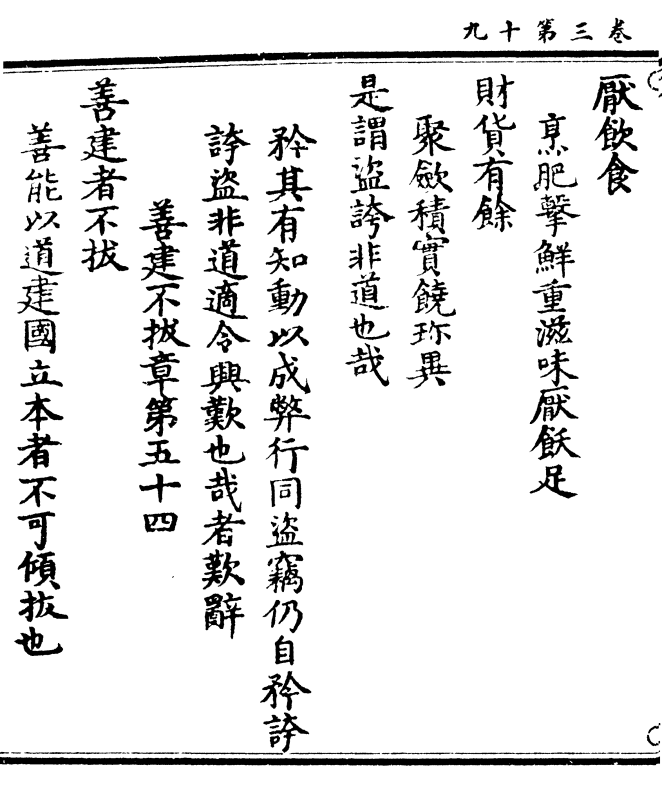 卷三第十九
厭飲食
烹肥擊鮮重滋味厭飫足
財貨有餘
聚斂積實饒珎異
是謂盜誇非道也哉
矜其有知動以成弊行同盜竊仍自矜誇
誇盜非道適令興歎也哉者歎辭
善建不拔章第五十四
善建者不拔
善能以道建國立本者不可傾拔也